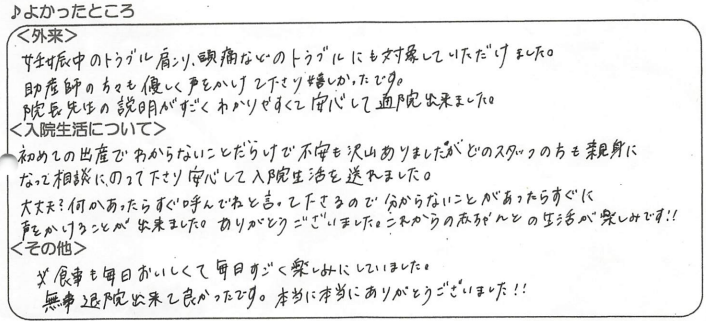 ♪よかったところ
＜外来＞
妊娠中のトラブル肩こり、頭痛などのトラブルにも対象していただけました。
助産師の方々も優しく声をかけて下さり嬉しかったです。
院長先生の説明がすごくわかりやすくて安心して通院出来ました。
＜入院生活について＞
初めての出産でわからないことだらけで不安も沢山ありましたがどのスタッフの方も親身に
なって相談にのって下さり安心して入院生活を送れました。
大丈夫?何かあったらすぐ呼んでねと言って下さるので分からないことがあったらすぐに
声をかけることが出来ました。ありがとうございました。これからの赤ちゃんとの生活が楽しみです!!
＜その他＞
お食事も毎日おいしくて毎日すごく楽しみにしていました。
無事退院出来て良かったです。本当に本当にありがとうございました!!